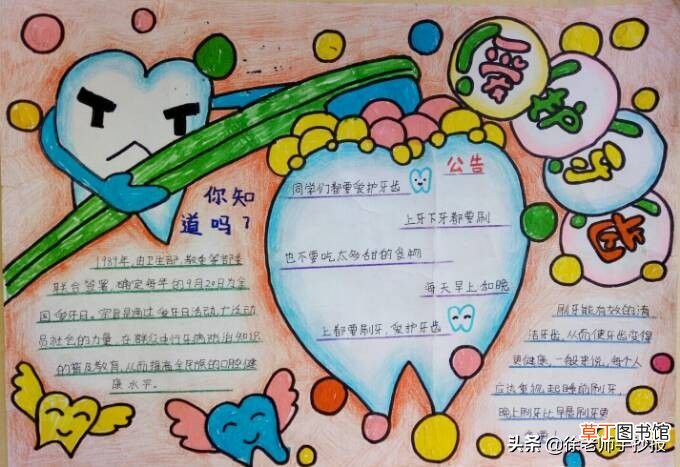 爱护牙齿
你知
道吗？
1989年，由卫生部、教委等部委
联合签署，确定每年的9月20日为全
国爱牙日。宗旨是通过爱牙日活动，广泛动
员社会的力量，在群众中进行牙病防治知识
的普及教育，从而提高全民族的口腔健
康水平。
公告
同学们都要爱护牙齿
上牙下牙都要刷
也不要吃太多甜的食物
每天早上和晚
上都要刷牙，爱护牙齿
刷牙能有效的清
洁牙齿，从而使牙齿变得
更健康，一般来说，每个人
应该重视起睡前刷牙，
晚上刷牙比早晨刷牙更
重要！
草丁图书馆
头条@徐老师手抄报